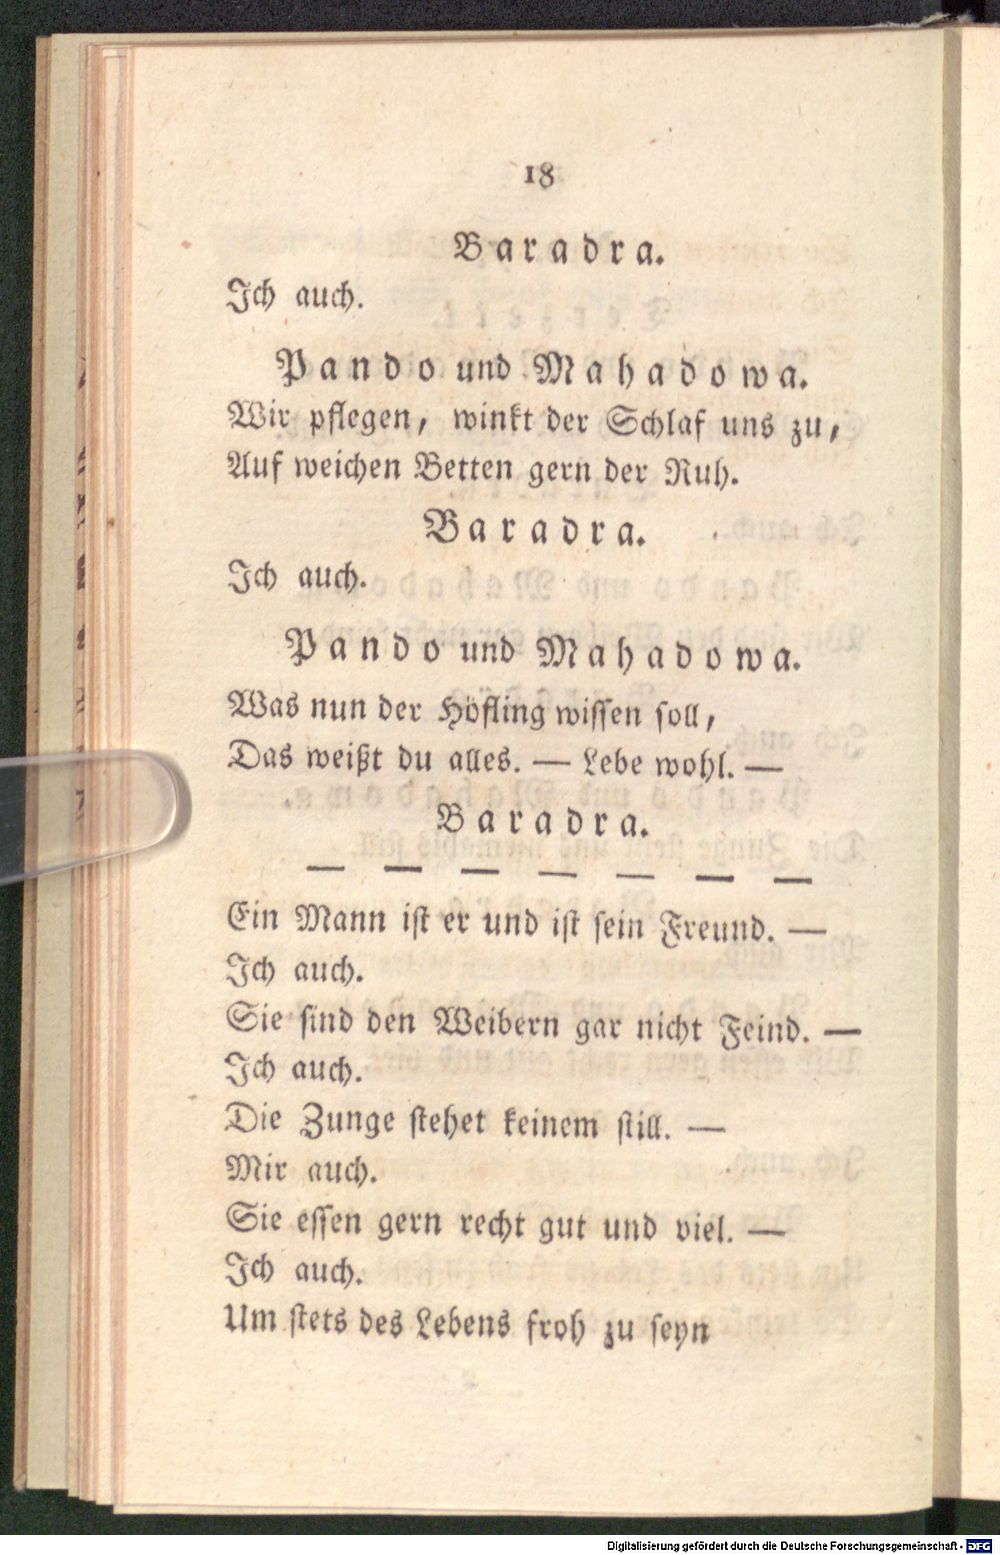 18
Baradra.
Ich auch.
Pando und Mahadowa.
Wir pflegen, winkt der Schlaf uns zu,
Auf weichen Betten gern der Ruh.
Baradra.
Ich auch.
Pando und Mahadowa.
Was nun der Höfling wissen soll,
Das weißt du alles. — Lebe wohl. —
Baradra.
— — — — — — —
Ein Mann ist er und ist sein Freund. —
Ich auch.
Sie sind den Weibern gar nicht Feind. —
Ich auch.
Die Zunge stehet keinem still. —
Mir auch.
Sie essen gern recht gut und viel. —
Ich auch.
Um stets des Lebens froh zu seyn
Digitalisierung gefördert durch die Deutsche Forschungsgemeinschaft - DFG